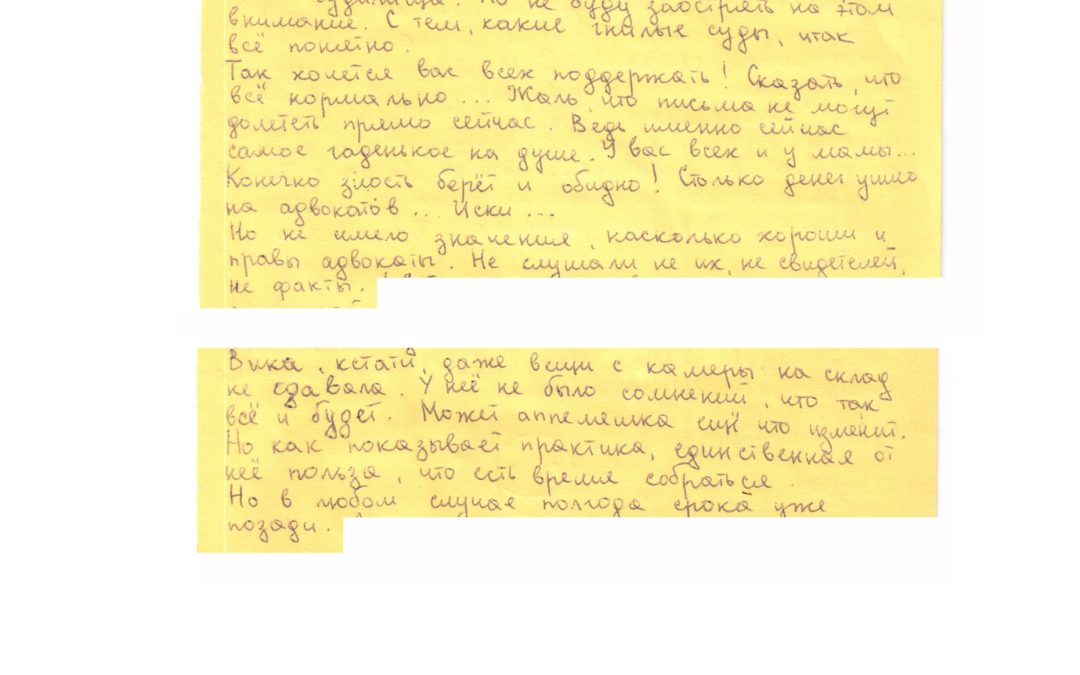 судилища. Но не буду заострять на этом
внимание. С тем, какие гнилые суды, итак
всё понятно.
Так хочется вас всех поддержать! Сказать, что
всё нормально... Жаль, что письма не могут
долететь прямо сейчас. Ведь именно сейчас
самое гаденькое на душе. У вас всех и у мамы...
Конечно злость берёт и обидно! Столько денег ушло
на адвокатов... Иски...
Но не имело значение, насколько хороши и
правы адвокаты. Не слушали не их, не свидетелей,
не факты.
Вика, кстати, даже вещи с камеры на склад
не сдавала. У неё не было сомнений, что так
всё и будет. Может аппеляшка ещё что изменит.
Но как показывает практика, единственная от
неё польза, что есть время собраться.
Но в любом случае полгода срока уже
позади.